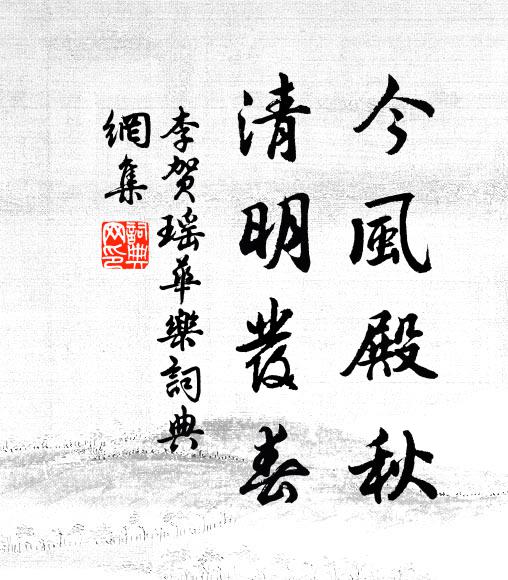 今風殿秋
清明發春
李賀瑤華樂詞典
網集
詞典
网印